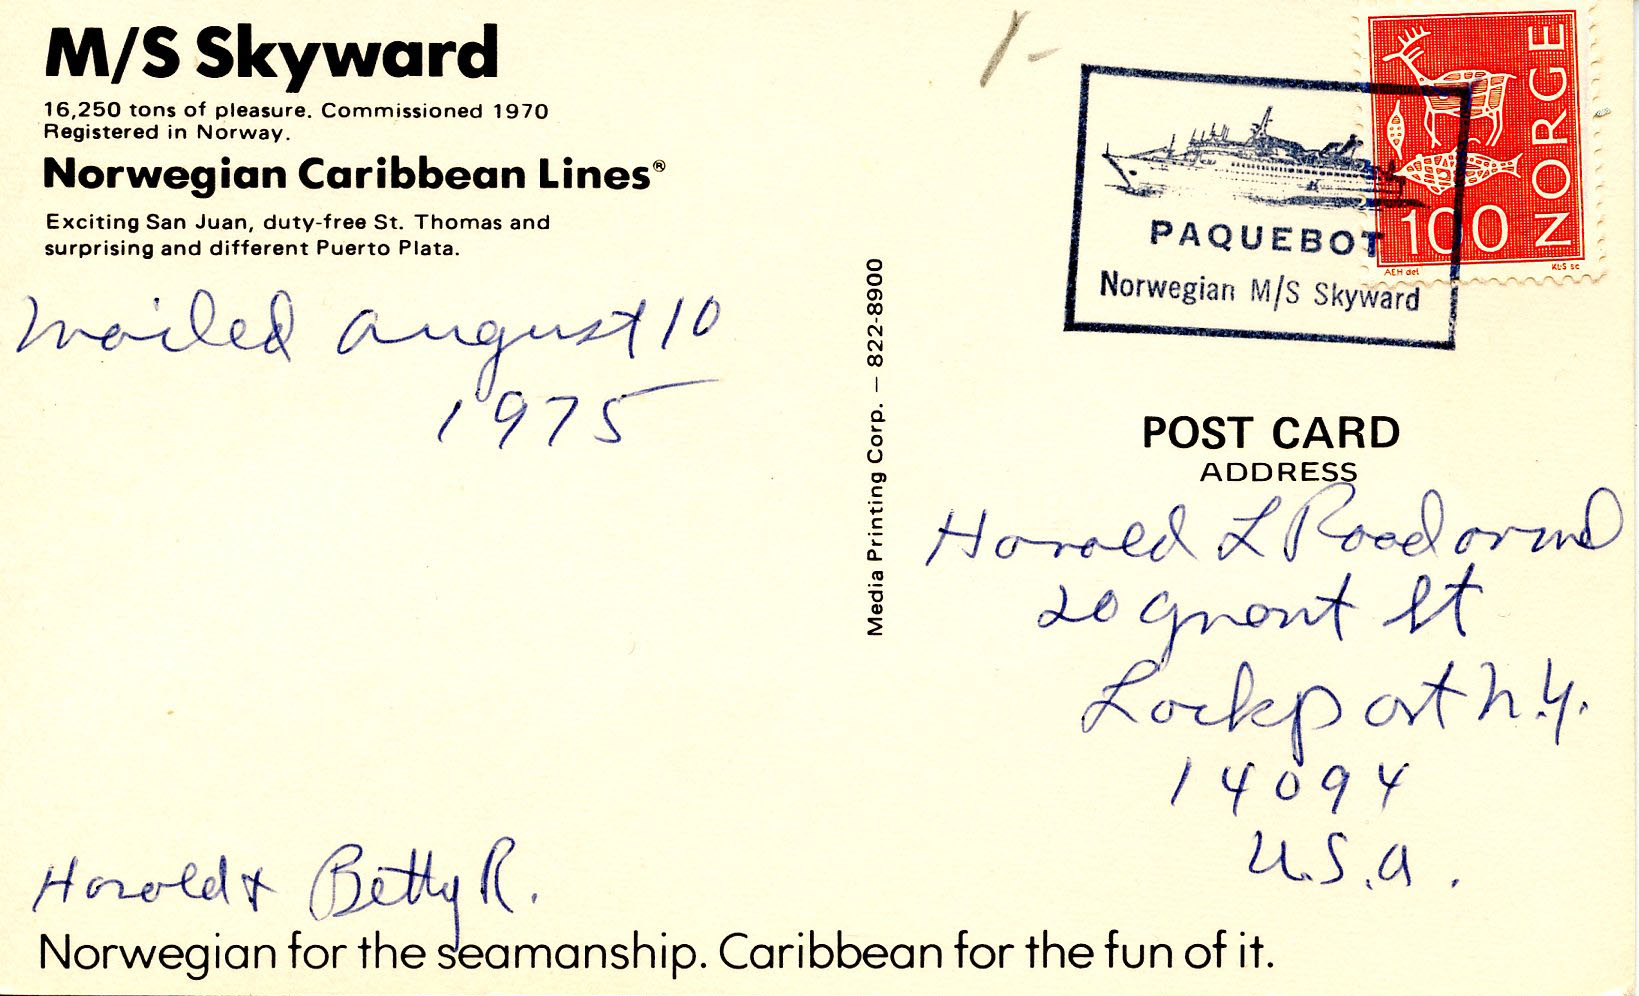 M/S Skyward
16,250 tons of pleasure. Commissioned 1970
Registered in Norway.
Norwegian Caribbean Lines®
Exciting San Juan, duty-free St. Thomas and
surprising and different Puerto Plata.
mailed august 10
1975
Harold & Betty R.
Norwegian for the seamanship. Caribbean for the fun of it.
Media Printing Corp. — 822-8900
1-
NORGE
100
AEH del
KUS sc
PAQUEBOT
Norwegian M/S Skyward
POST CARD
ADDRESS
Harold L Roodarmel
20 Grant St
Lockport N.Y.
14094
U.S.A.